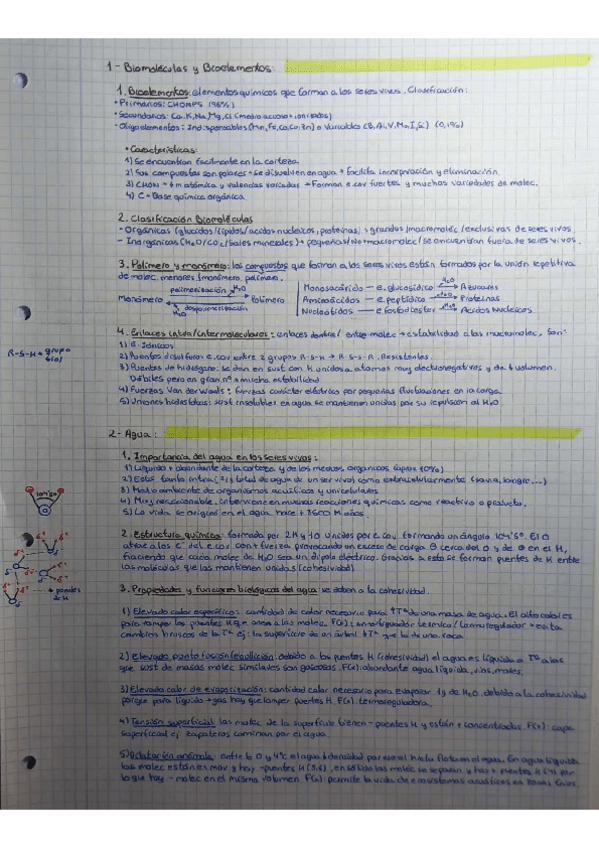 1- Biomoléculas y Bioelementos:
1. Bioelementos: elementos químicos que forman a los seres vivos. Clasificación:
• Primarios: CHONPS (96%)
• Secundarios: Ca, K, Na, Mg, Cl (medio acuoso + ionizados)
• Oligoelementos: Indispensables (Mn, Fe, Co, Cu, Zn) o Variables (B, Al, V, Mo, I, Si) (0,1%)
• Características:
1) Se encuentran fácilmente en la corteza
2) Sus compuestos son polares → se disuelven en agua → facilita incorporación y eliminación.
3) CHON → m atómica y valencias variadas → Forman e cov fuertes y muchas variedades de molec.
4) C = Base química orgánica.
2. Clasificación Biomoléculas
- Orgánicas (glúcidos/lípidos/ácidos nucleicos, proteínas) → grandes/macromoléc/exclusivas de seres vivos.
- Inorgánicas (H2O/CO2/Sales minerales) → pequeñas/No macromolec/se encuentran fuera de seres vivos.
3. Polímero y monómero: los compuestos que forman a los seres vivos están formados por la unión repetitiva
de molec. menores (monómero, polímero).
Monómero polimerización H2O Polímero
H2O despolimerización
Monosacárido — e. glucosídico H2O Azúcares
Aminoácidos — e. peptídico H2O Proteínas
Nucleótidos — e. fosfodiéster H2O Ácidos Nucleicos
4. Enlaces intra/intermoleculares: enlaces dentro/entre molec → estabilidad a las macromolec. Son:
1) E. Iónicos
R-S-H → grupo tiol
2) Puentes disulfuro: e. cov. entre 2 grupos R-S-H → R-S-S-R. Resistentes.
3) Puentes de hidrógeno: se dan en sust con H unidos a átomos muy electronegativos y de volumen.
Débiles pero en gran nº → mucha estabilidad
4) Fuerzas Van der Waals: fuerzas carácter eléctrico por pequeñas fluctuaciones en la carga.
5) Uniones hidrófobas: sust insolubles en agua se mantienen unidas por su repulsión al H2O.
2- Agua:
1. Importancia del agua en los seres vivos:
1) Líquido + abundante de la corteza y de los medios orgánicos
2) Está tanto intra (2/3 total de agua de un ser vivo) como extracelularmente (savia, sangre...)
3) Medio ambiente de organismos acuáticos y unicelulares
4) Muy reaccionable. Interviene en muchas reacciones químicas como reactivo o producto.
5) La vida se originó en el agua hace + 3500 M años.
104'5º
2. Estructura química: formada por 2H y 1O unidos por e cov, formando un ángulo 104'5º. El O
atrae a los e- del e cov con + fuerza provocando un exceso de carga ⊖ cerca del O y de ⊕ en el H,
haciendo que cada molec de H2O sea un dipolo eléctrico. Gracias a esto se forman puentes de H entre
las moléculas que las mantienen unidas (cohesividad)
puentes de H
3. Propiedades y funciones biológicas del agua se deben a la cohesividad.
1) Elevado calor específico: cantidad de calor necesario para ↑Tª de una masa de agua. El alto calor es
para romper los puentes H que unen a las molec. F(x): amortiguador térmico/termorregulador → evita
cambios bruscos de la Tª ej: la superficie de un árbol ↓Tª que la de una roca
2) Elevado punto fusión/ebullición: debido a los puentes H (cohesividad) el agua es líquida a Tª a las
que sust de masas molec similares son gaseosas. F(x): abundante agua líquida, ríos, mares.
3) Elevado calor de evaporización: cantidad calor necesario para evaporar 1g de H2O. debido a la cohesividad
porque para líquido → gas hay que romper puentes H. F(x): termorreguladora.
4) Tensión superficial: las molec de la superficie tienen - puentes H y están + concentradas. F(x): capa
superficial ej zapateros caminan por el agua.
5) Dilatación anómala: entre 0 y 4ºC el agua ↓densidad por eso el hielo flota en el agua. En agua líquida
las molec están en mov y hay -puentes H (3,6), en sólido las molec se separan y hay + puentes H (4) por
lo que hay - molec en el mismo volumen. F(x) permite la vida de ecosistemas acuáticos en zonas frías.